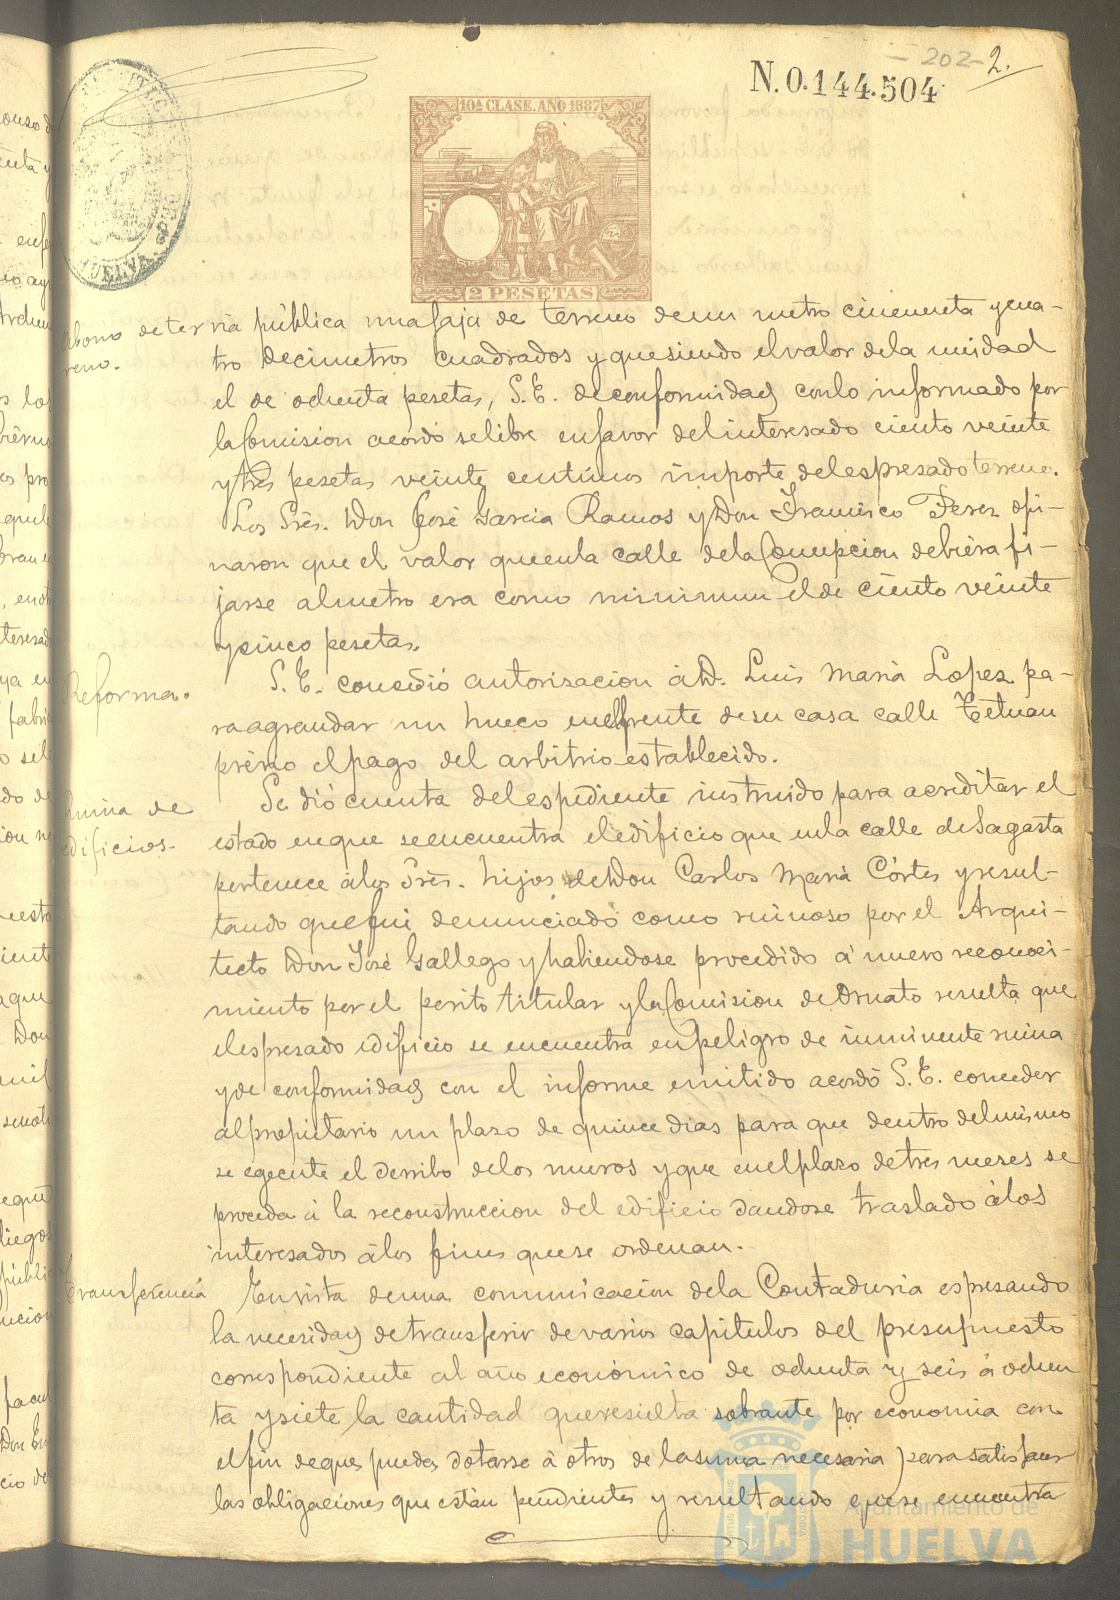 - 202 - 2.
N.0.144.504
10ª CLASE. AÑO 1887
2 PESETAS
HUELVA
Abono de ter
reno.
via pública una faja de terreno de un metro cincuenta y cua-
tro decimetros cuadrados y que siendo el valor de la unidad
el de ochenta pesetas, S. E. de conformidad con lo informado por
la Comision acordó se libre en favor del interesado ciento veinte
y tres pesetas veinte centimos importe del espresado terreno.
Los Srès. Don José Garcia Ramos y Don Francisco Perez opi-
naron que el valor que en la calle de la Concepcion debiera fi-
jarse al metro era como minimun el de ciento veinte
y cinco pesetas.
Reforma.
S. E. concedió autorizacion á D. Luis Maria Lopez pa-
ra agrandar un hueco en el frente de su casa calle Tetuan
prévio el pago del arbitrio establecido.
Ruina de
edificios.
Se dió cuenta del espediente instruido para acreditar el
estado en que se encuentra el edificio que en la calle de Sagasta
pertenece á los Srès. hijos de Don Carlos Maria Córtes y resul-
tando que fué denunciado como ruinoso por el Arqui-
tecto Don José Gallego y habiendose procedido á nuevo reconoci-
miento por el perito titular y la Comision de Ornato resulta que
el espresado edificio se encuentra en peligro de inminente ruina
y de conformidad con el informe emitido acordó S. E. conceder
al propietario un plazo de quince dias para que dentro del mismo
se egecute el derribo de los muros y que en el plazo de tres meses se
proceda á la reconstruccion del edificio dandose traslado á los
interesados á los fines que se ordenan.
Transferencia
En vista de una comunicacion de la Contaduria espresando
la necesidad de transferir de varios capitulos del presupuesto
correspondiente al año económico de ochenta y seis á ochen
ta y siete, la cantidad que resulta sobrante por economia con
el fin de que pueda dotarse á otros de la suma necesaria para satisfacer
las obligaciones que están pendientes y resultando que se encuentra
Ayuntamiento de
HUELVA